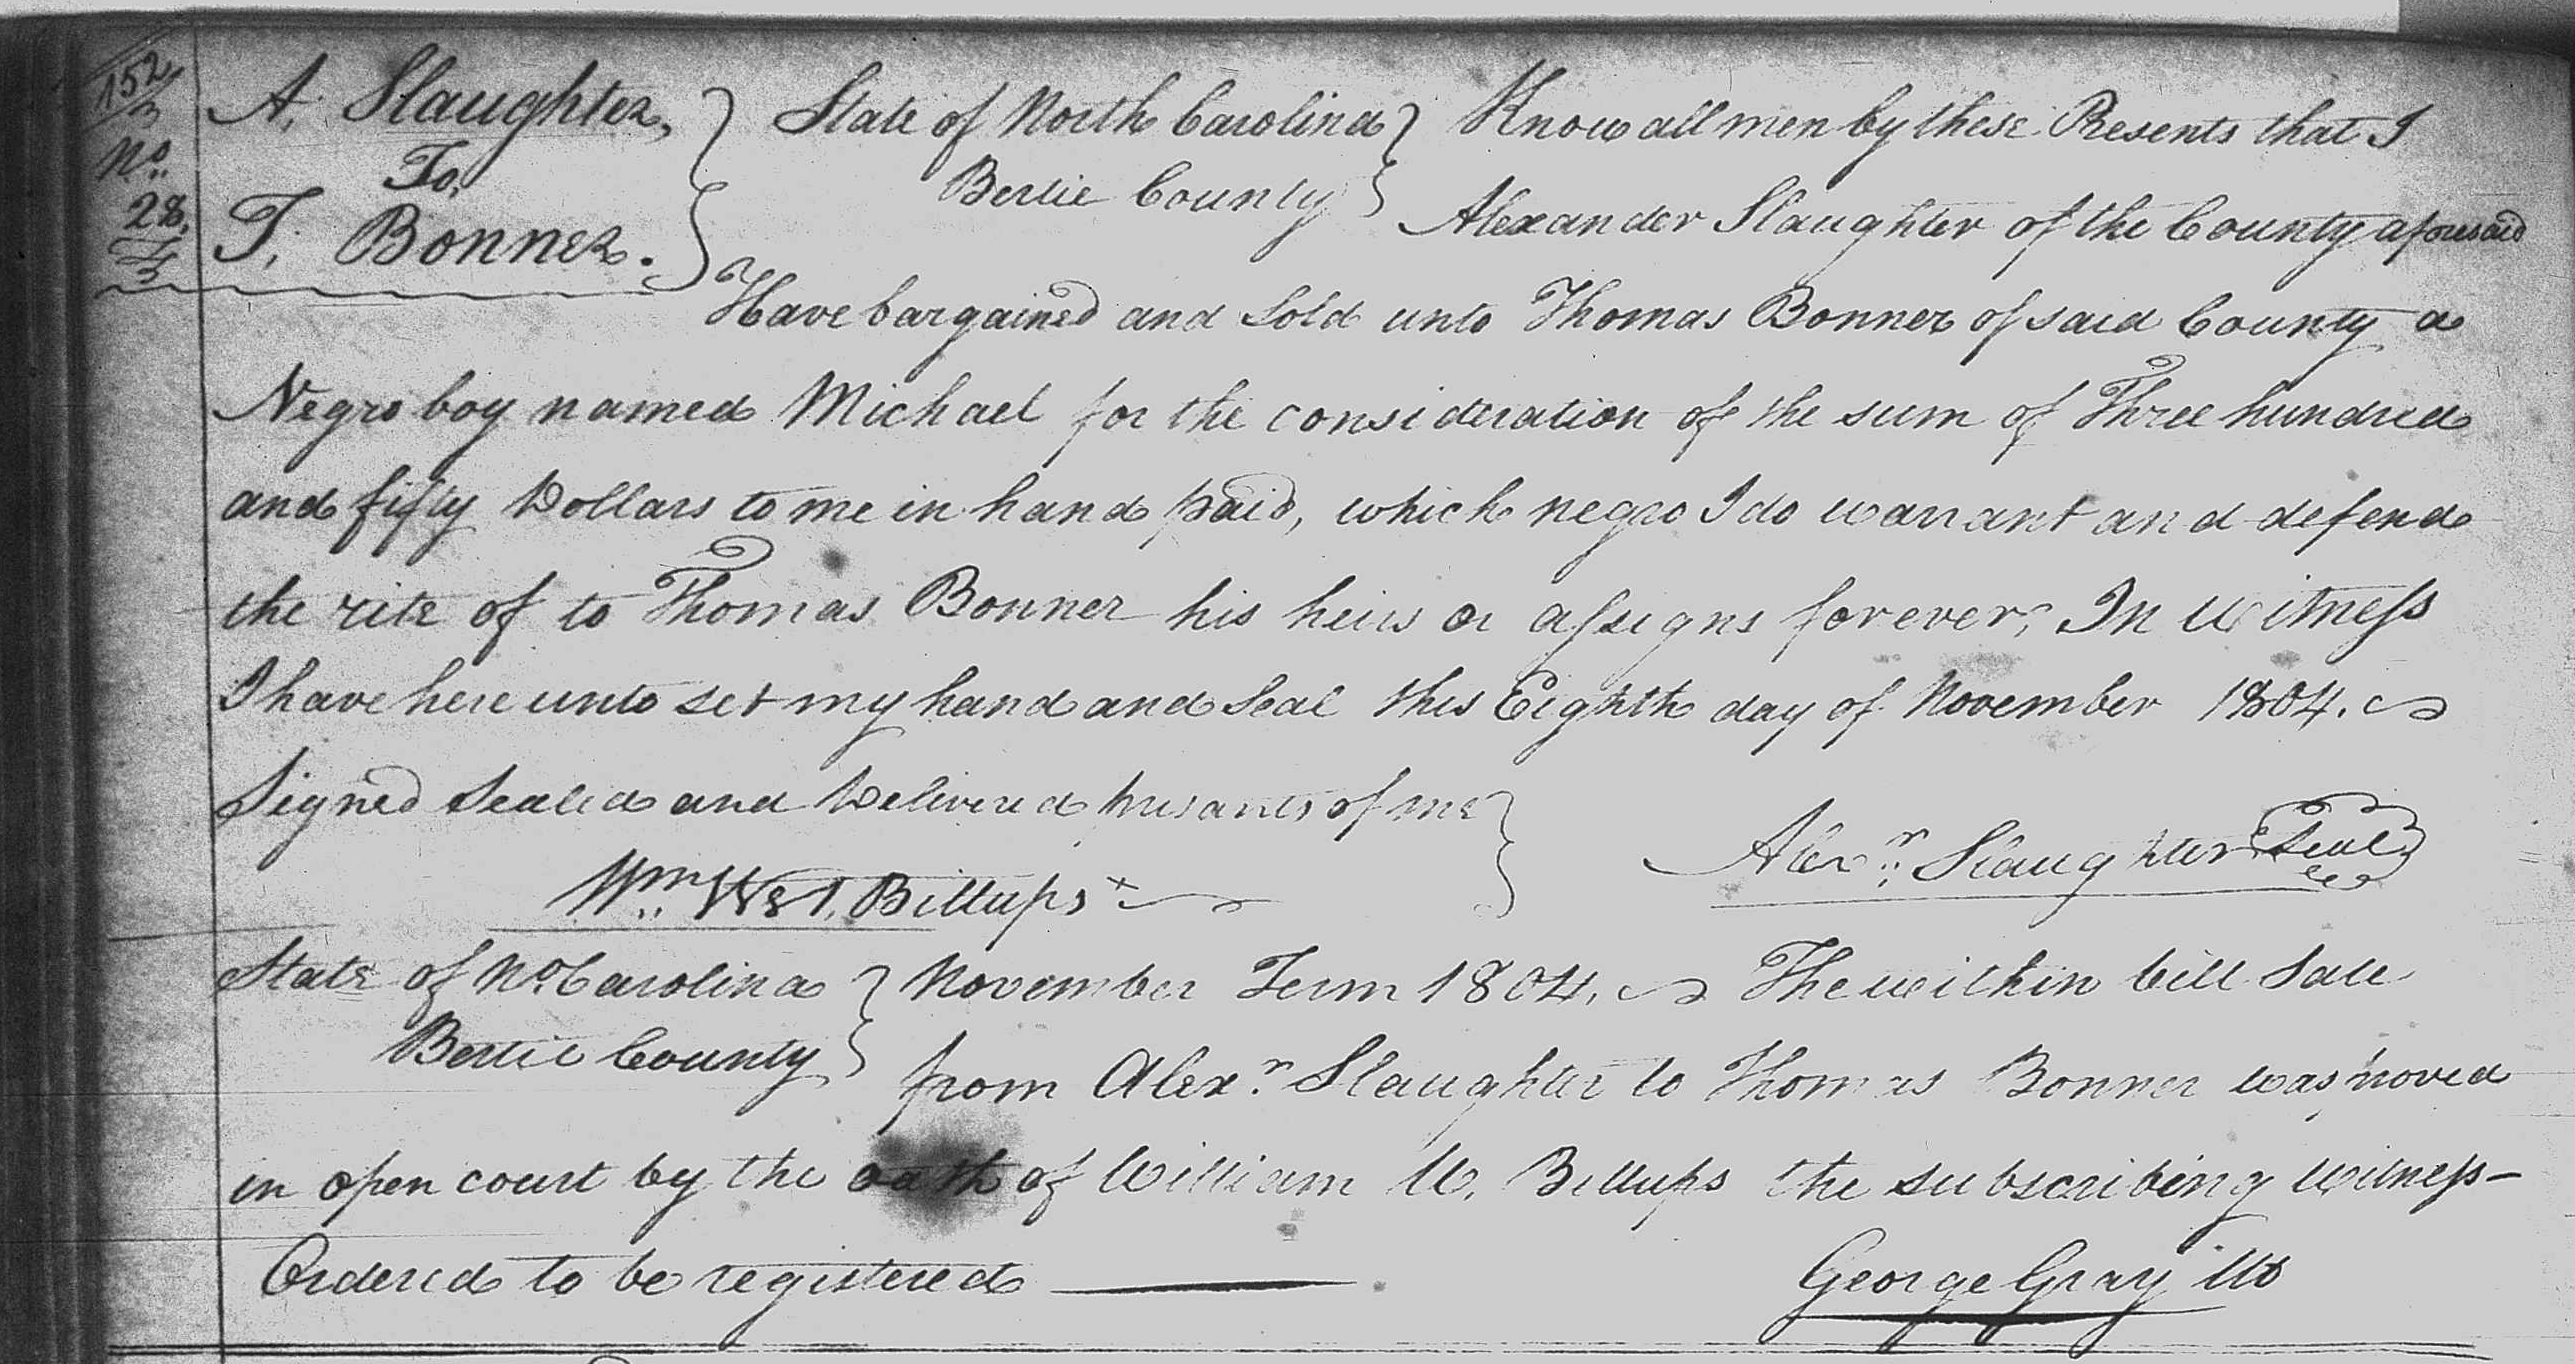 152
3
No.
28.
A. Slaughter,
To,
T. Bonner.
State of North Carolina
Bertie County
Know all men by these Presents that I
Alexander Slaughter of the County aforesaid
Have bargained and Sold unto Thomas Bonner of said County a
Negro boy named Michael for the consideration of the sum of Three hundred
and fifty Dollars to me in hand paid, which negro I do warrant and defend
the rite of to Thomas Bonner his heirs or assigns forever, In witness
I have here unto set my hand and Seal this Eighth day of November 1804.
Signed Sealed and Delivered presants of me
Wm. West. Billups +
Alexr. Slaughter Seal
State of No. Carolina
Bertie County
November Term 1804. The within bill Sale
from Alexr. Slaughter to Thomas Bonner was proved
in open court by the oath of William W. Billups the subscribing witness-
Ordered to be registered
George Gray